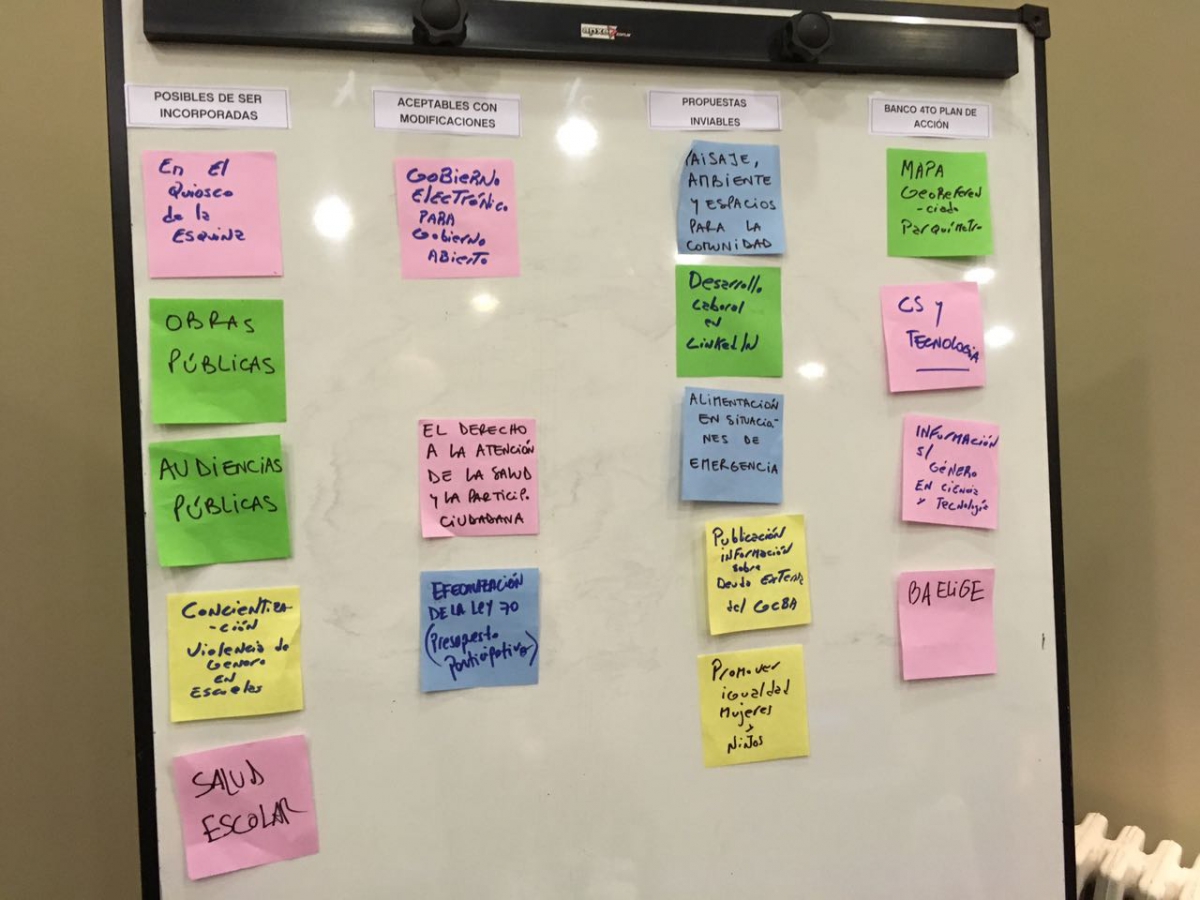 POSIBLES DE SER
INCORPORADAS
En El
Quiosco
de la
Esquina
OBRAS
PÚBLICAS
AUDIENCIAS
PÚBLICAS
CONCIENTIZA-
-ción
Violencia de
Genero
EN
Escuelas
SALUD
ESCOLAR
ACEPTABLES CON
MODIFICACIONES
GOBIERNO
ELECTRÓNICO
PARA
Gobierno
ABIERTO
EL DERECHO
A LA ATENCIÓN
DE LA SALUD
Y LA PARTICIP.
CIUDADANA
EFECTIVIZACIÓN
DE LA LEY 70
(Presupuesto
participativo)
PROPUESTAS
INVIABLES
PAISAJE,
AMBIENTE
Y ESPACIOS
PARA LA
COMUNIDAD
Desarrollo
Laboral
en
LinkedIN
ALIMENTACIÓN
EN SITUACIO-
NES DE
EMERGENCIA
Publicación
información
sobre
Deuda Externa
del GCBA
Promover
igualdad
Mujeres
y
Niños
BANCO 4TO PLAN DE
ACCIÓN
MAPA
GeoReferen
-ciado
Parquímetro
CS y
TECNOLOGIA
INFORMACIÓN
S/
GÉNERO
EN ciencia
y Tecnología
BA ELIGE